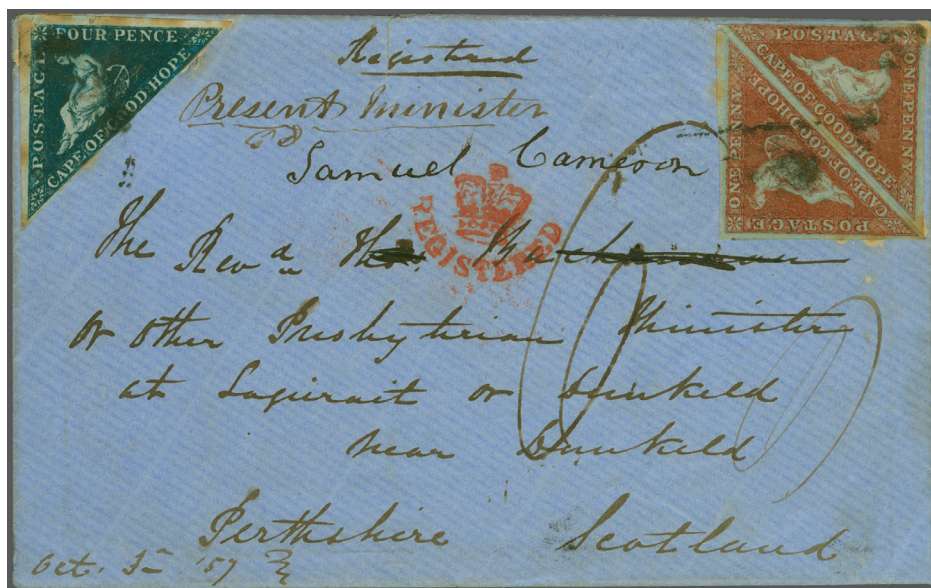 POSTAGE
FOUR PENCE
CAPE OF GOOD HOPE
POSTAGE
ONE PENNY
CAPE OF GOOD HOPE
ONE PENNY
CAPE OF GOOD HOPE
POSTAGE
Registered
Present Minister
Samuel Cameron
REGISTERED
The Revd
or other Presbyterian Minister
at Logierait or Dunkeld
near Dunkeld
Perthshire Scotland
Oct. 3 '57